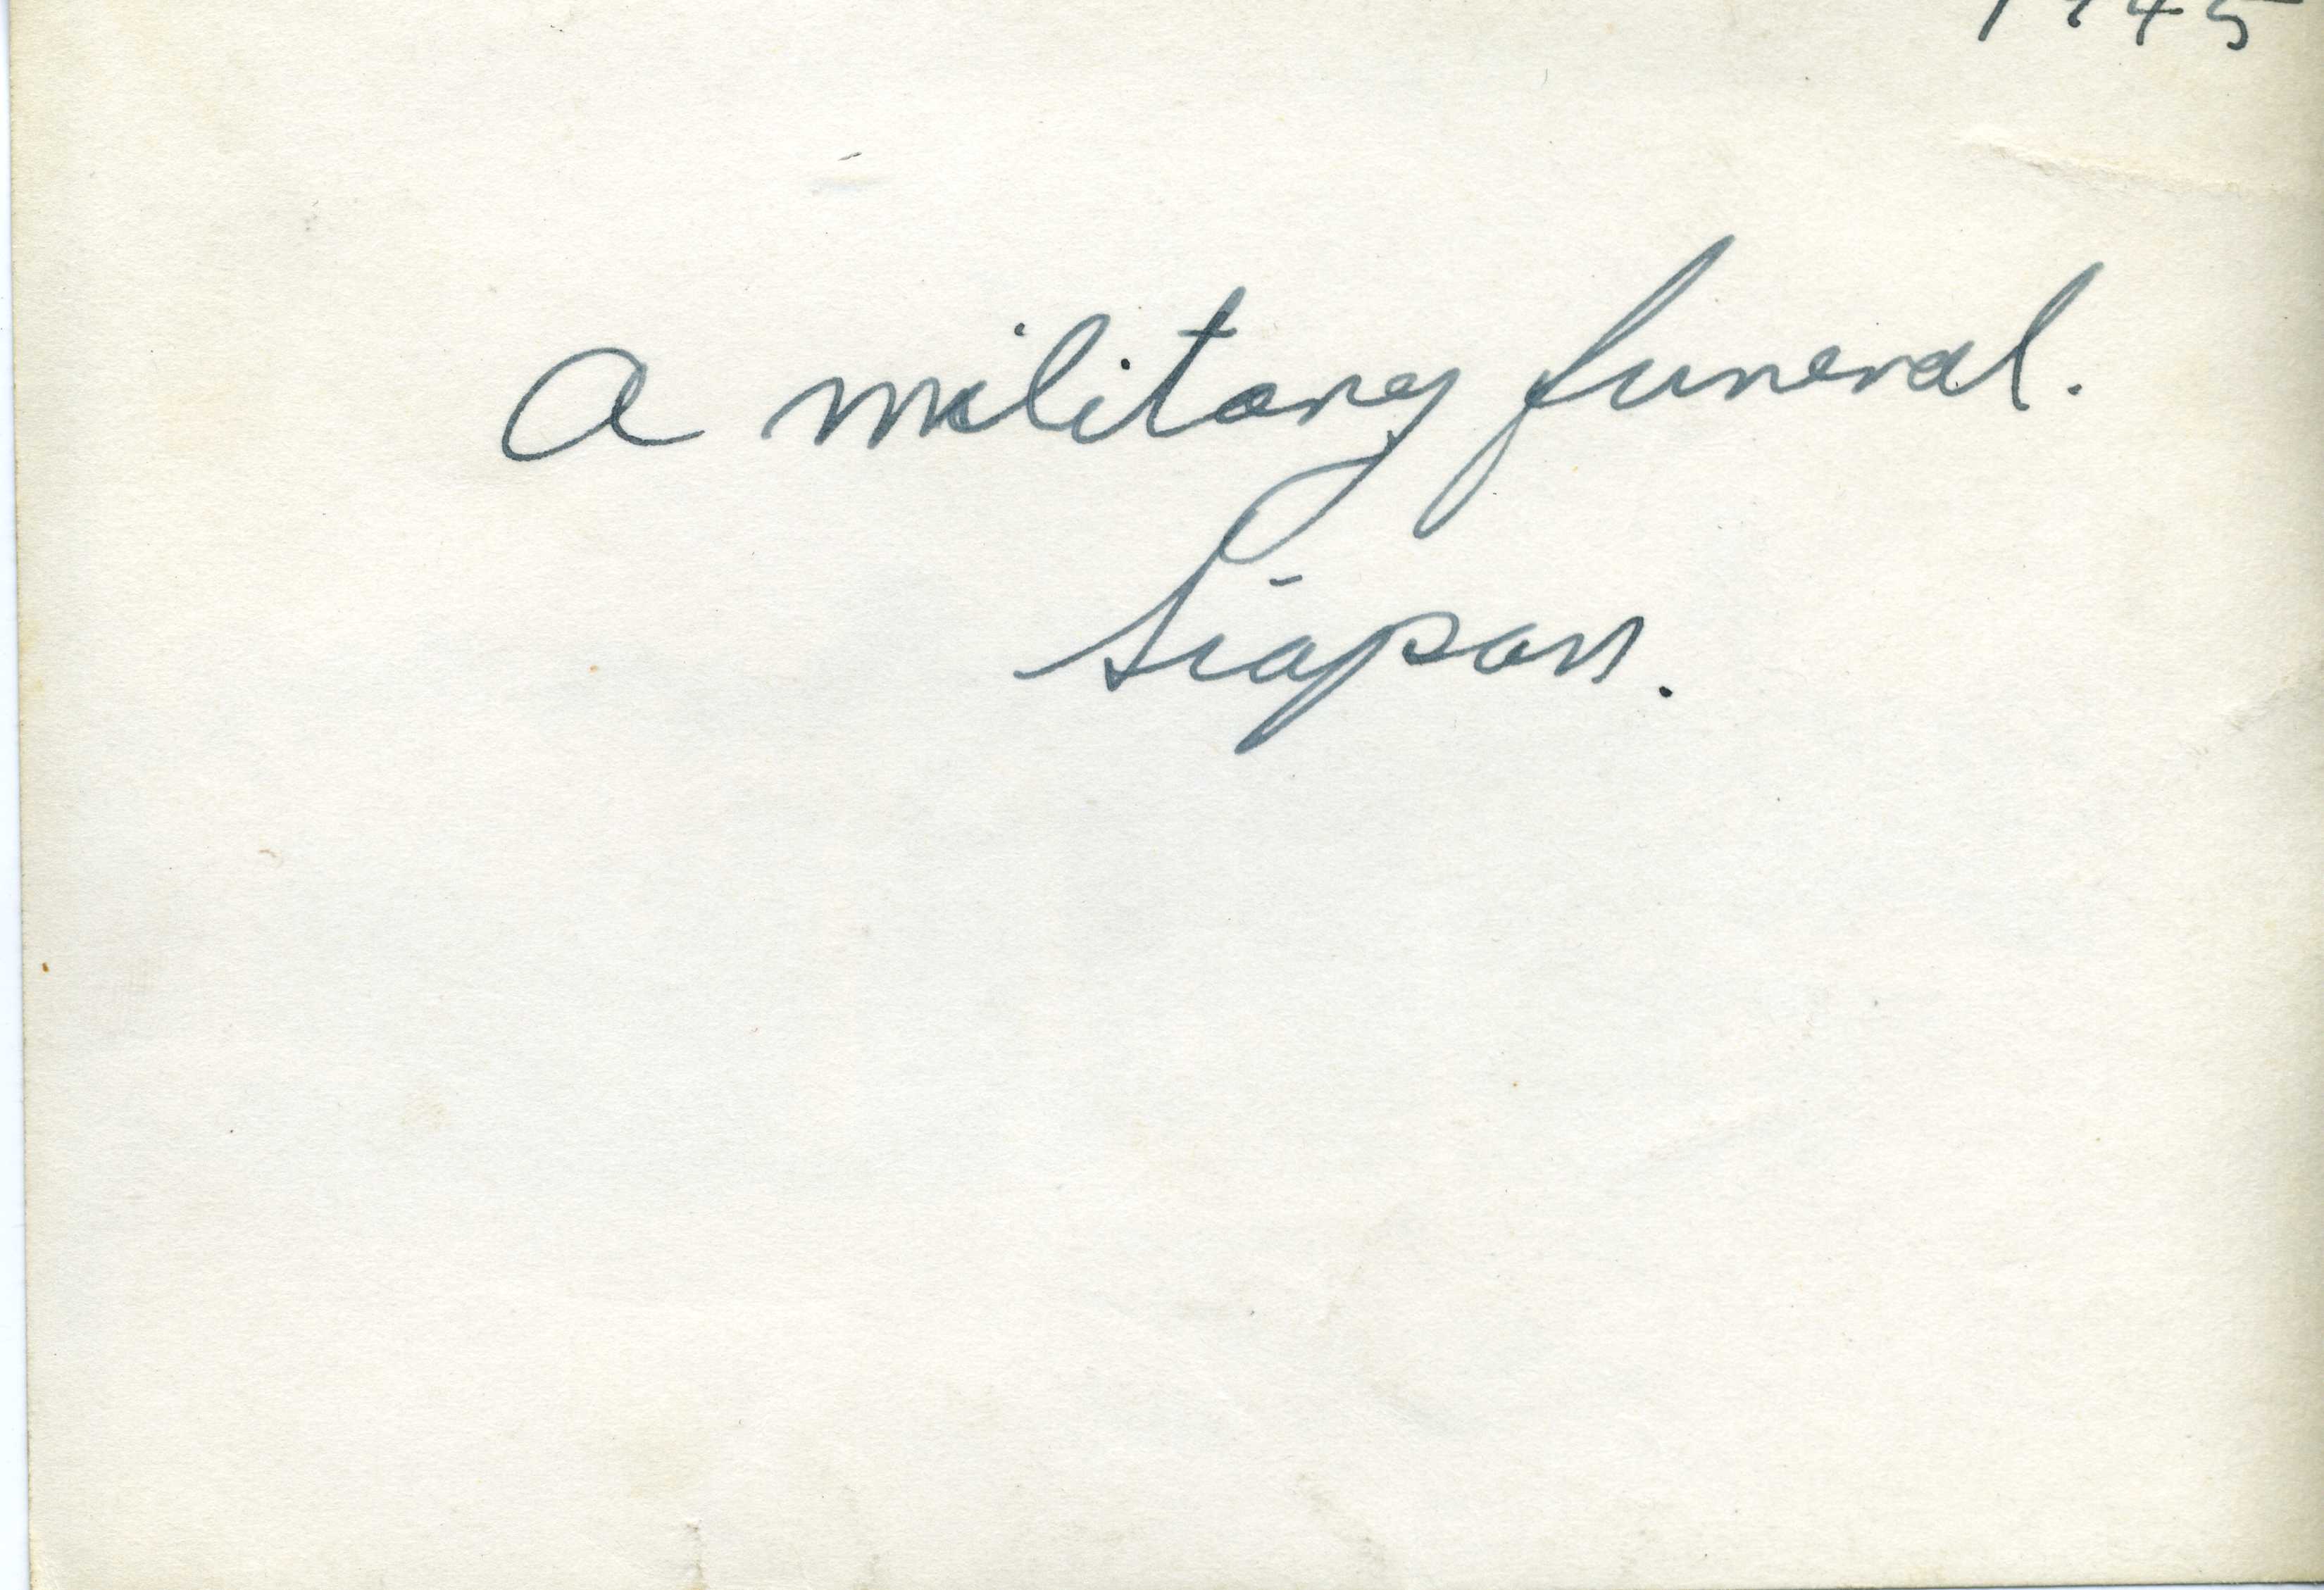 1945
A military funeral.
Siapan.